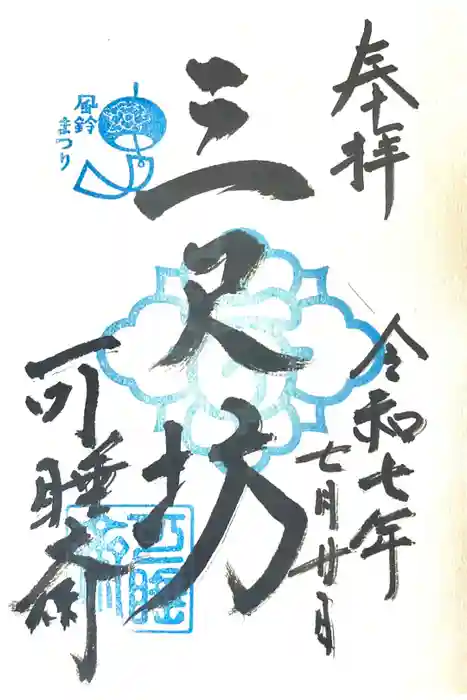 奉拝
令和七年
七月廿日
三尺坊
可睡斎
風鈴
まつり
可睡